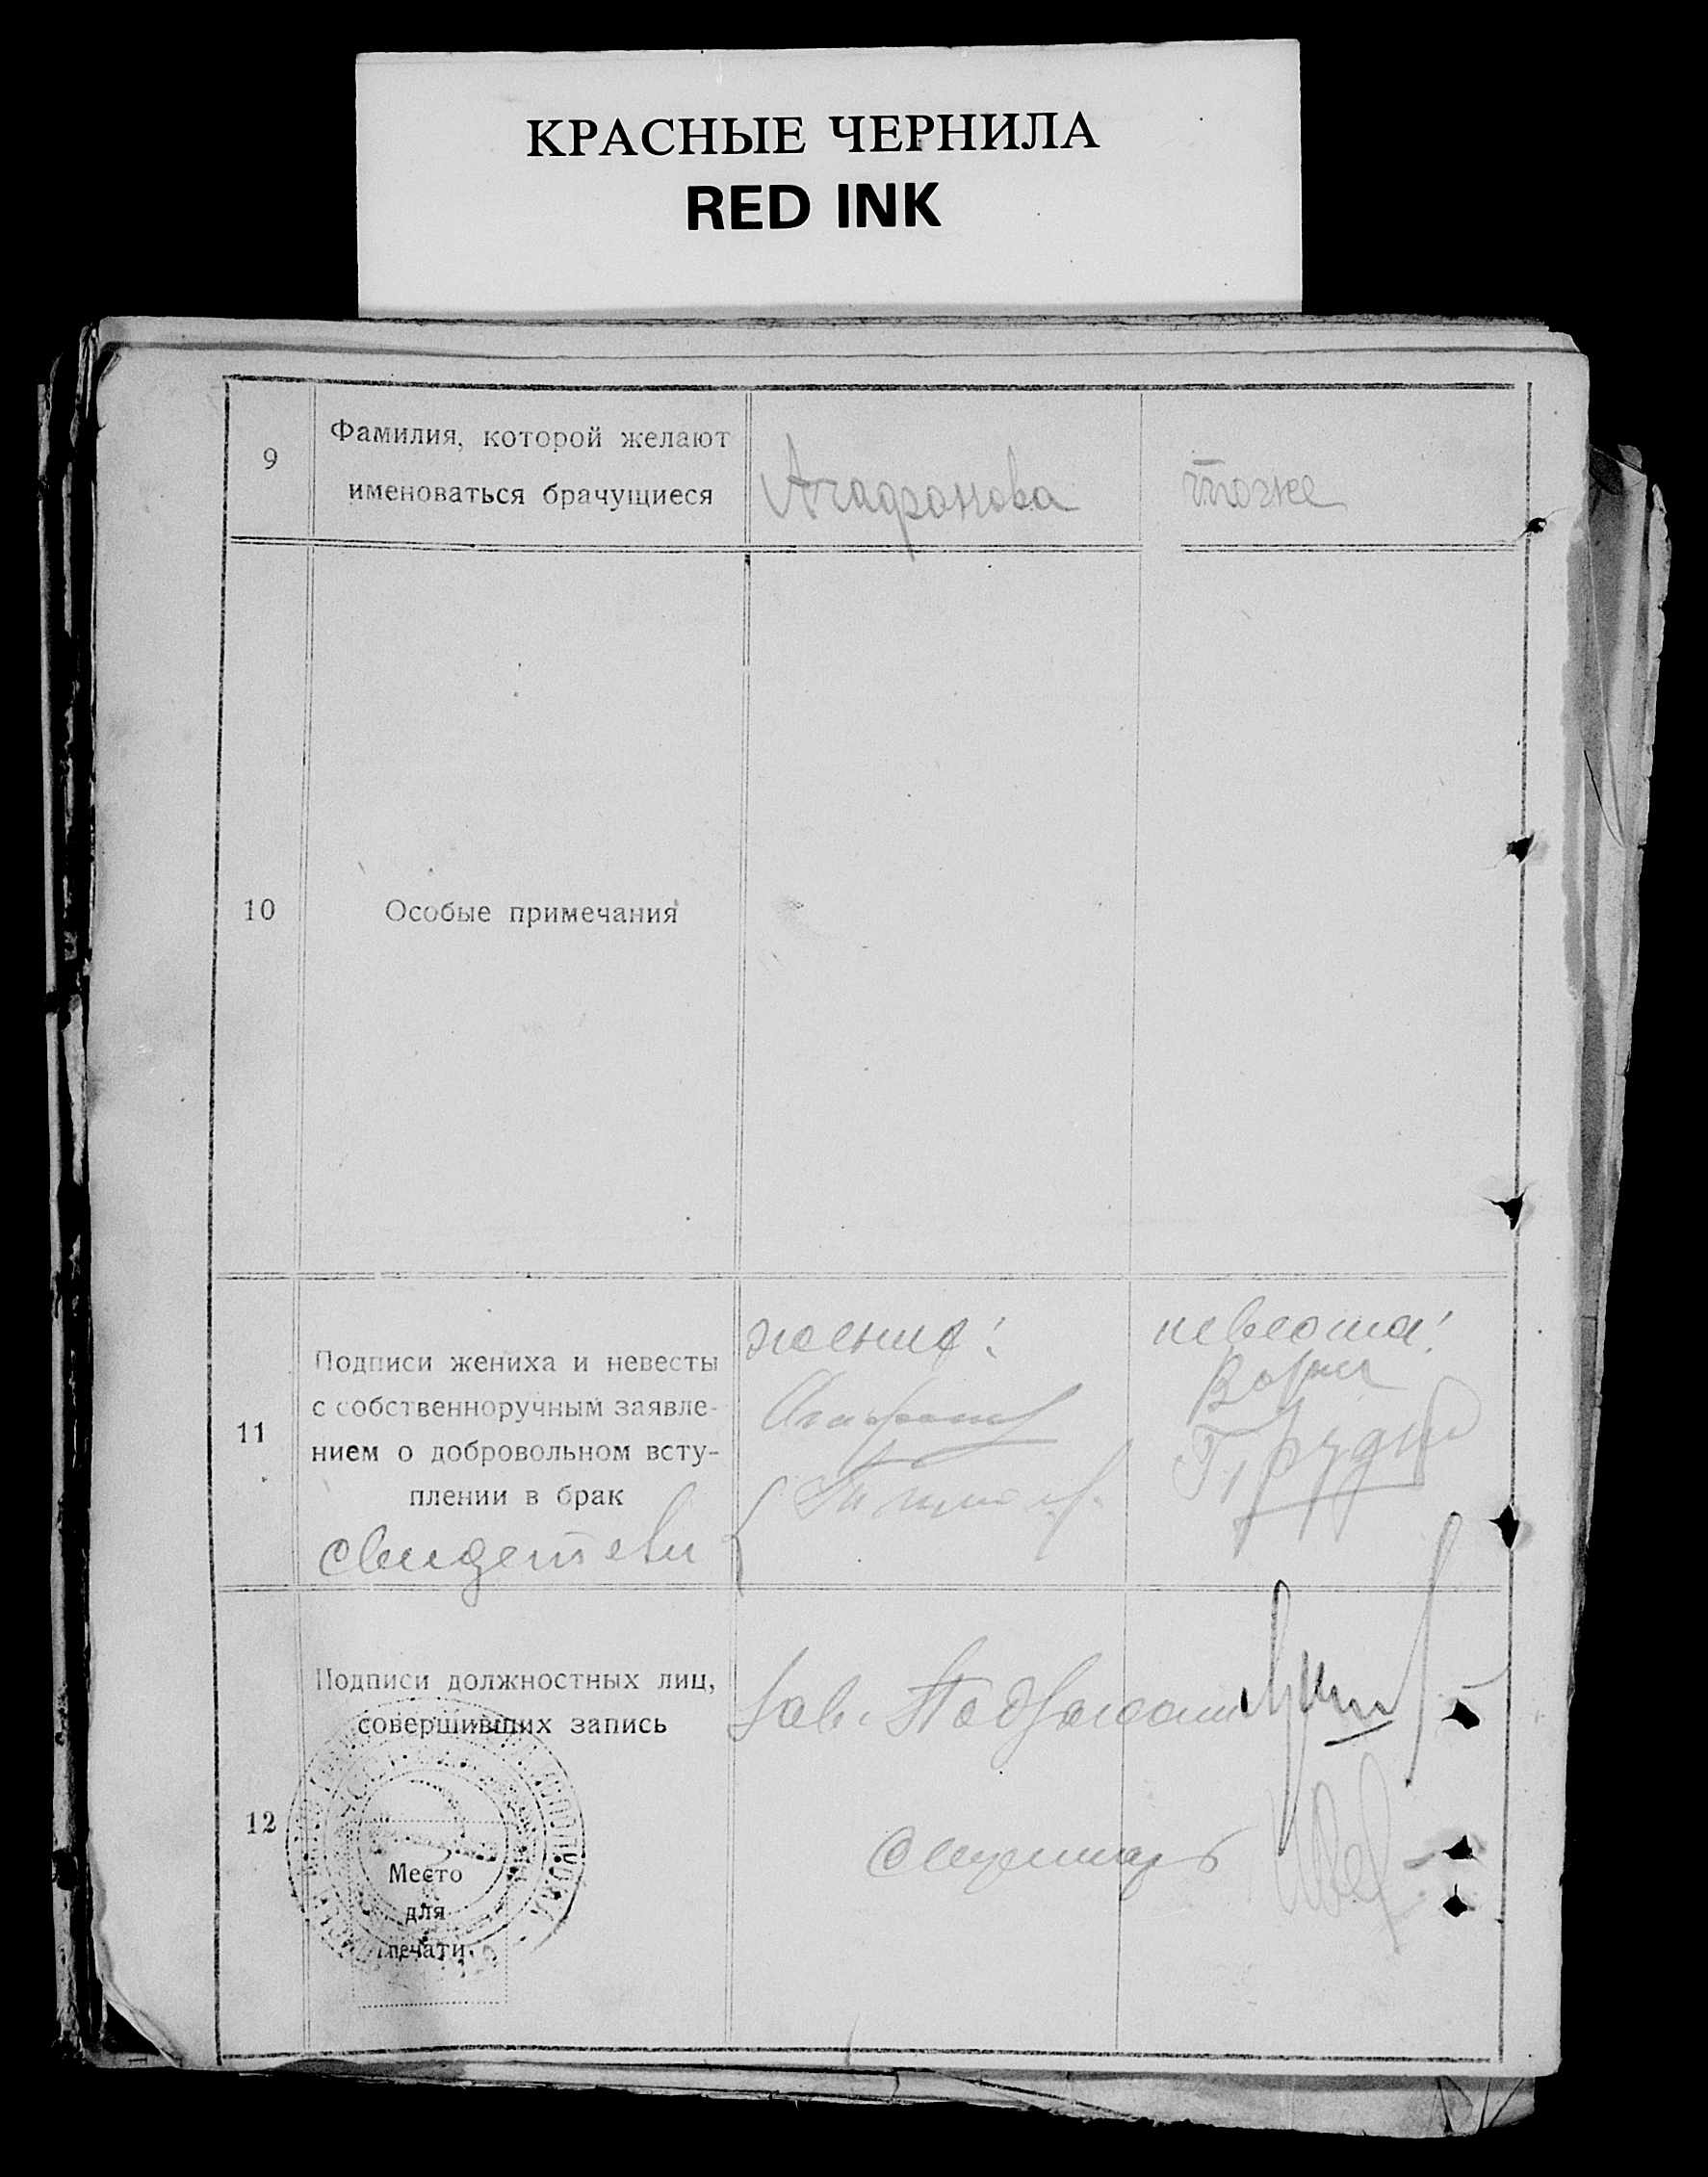 КРАСНЫЕ ЧЕРНИЛА
RED INK
9
Фамилия, которой желают
именоваться брачущиеся
Агафонова
тоже
10
Особые примечания
11
Подписи жениха и невесты
с собственноручным заявле-
нием о добровольном всту-
плении в брак
свидетели
жених:
невеста:
12
Подписи должностных лиц,
совершивших запись
Зав. Подотделом
Секретарь
Место
для
печати